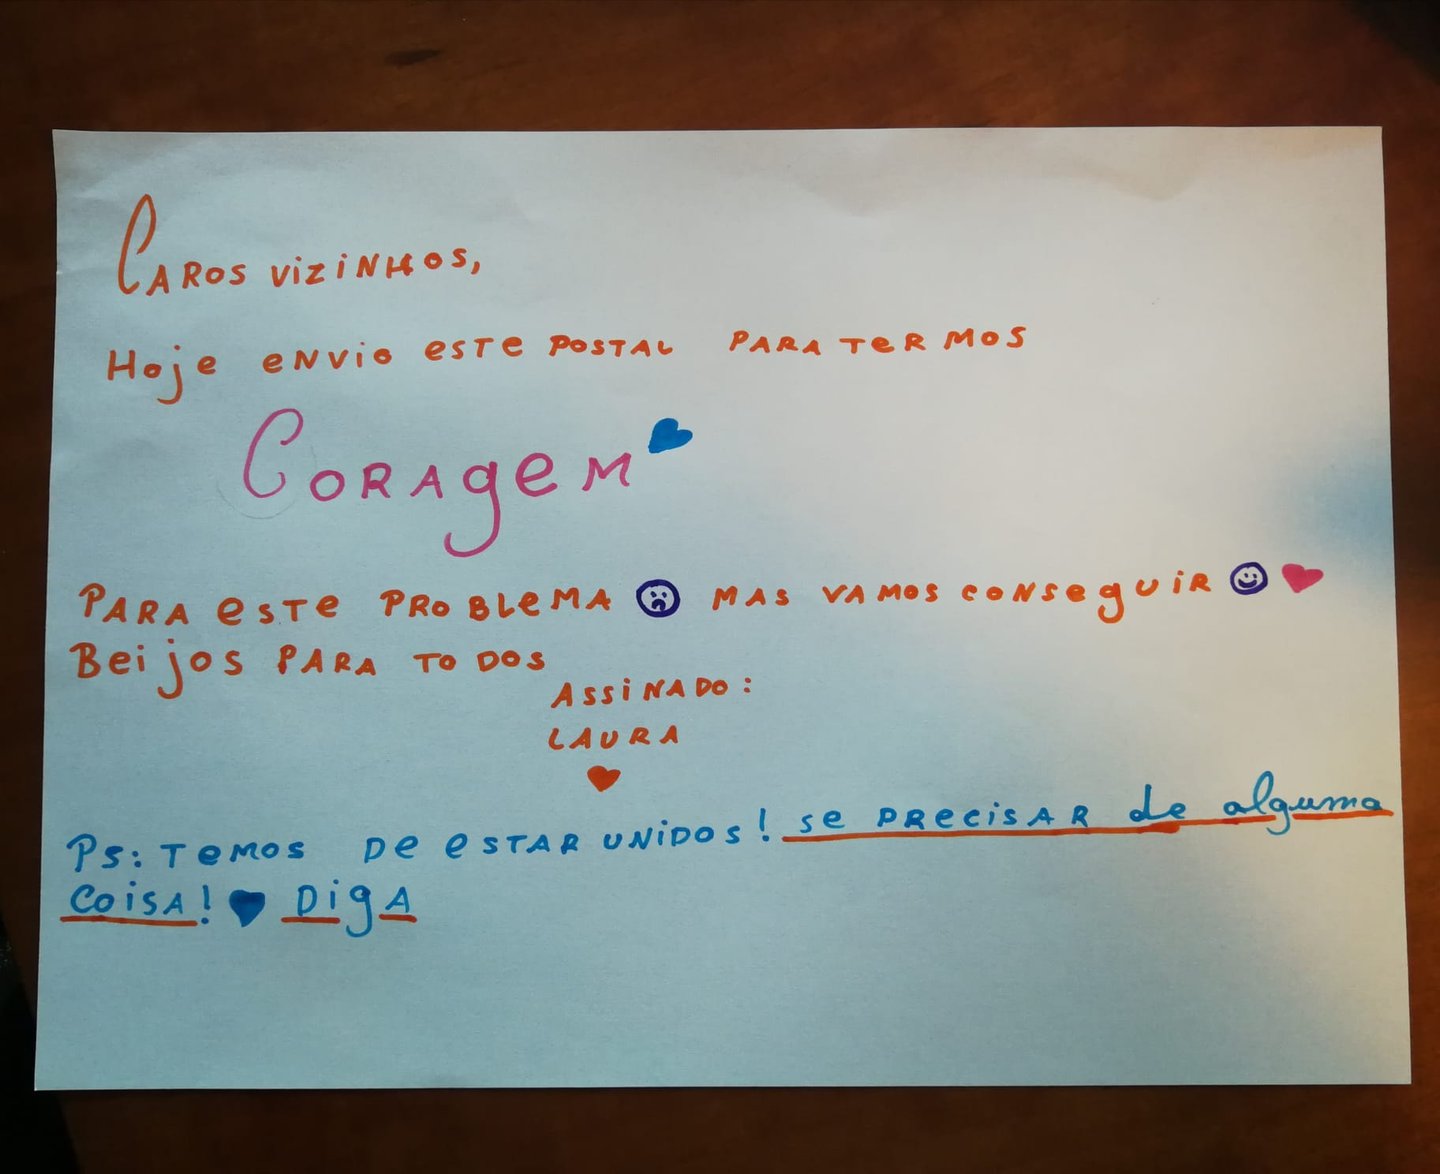 Caros vizinhos,
Hoje envio este postal para termos
Coragem
Para este problema mas vamos conseguir
Beijos para todos
Assinado:
Laura
Ps: Temos de estar unidos! se precisar de alguma
coisa! Diga